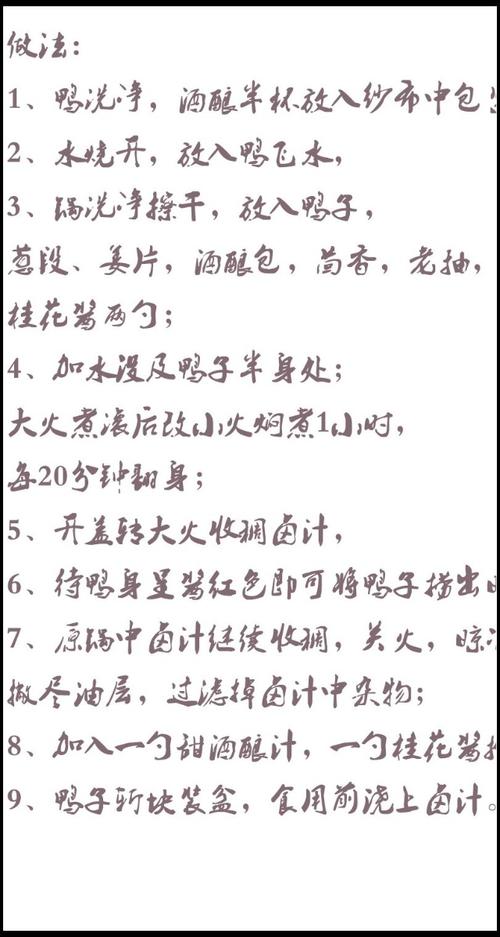 做法：
1、鸭洗净，酒酿半杯放入纱布中包
2、水烧开，放入鸭飞水，
3、锅洗净擦干，放入鸭子，
葱段、姜片，酒酿包，茴香，老抽，
桂花酱两勺；
4、加水没及鸭子半身处；
大火煮滚后改小火焖煮1小时，
每20分钟翻身；
5、开盖转大火收稠卤汁，
6、待鸭身呈酱红色即可将鸭子捞出
7、原锅中卤汁继续收稠，关火，晾
撇尽油层，过滤掉卤汁中杂物；
8、加入一勺甜酒酿汁，一勺桂花酱
9、鸭子斩块装盆，食用前浇上卤汁。